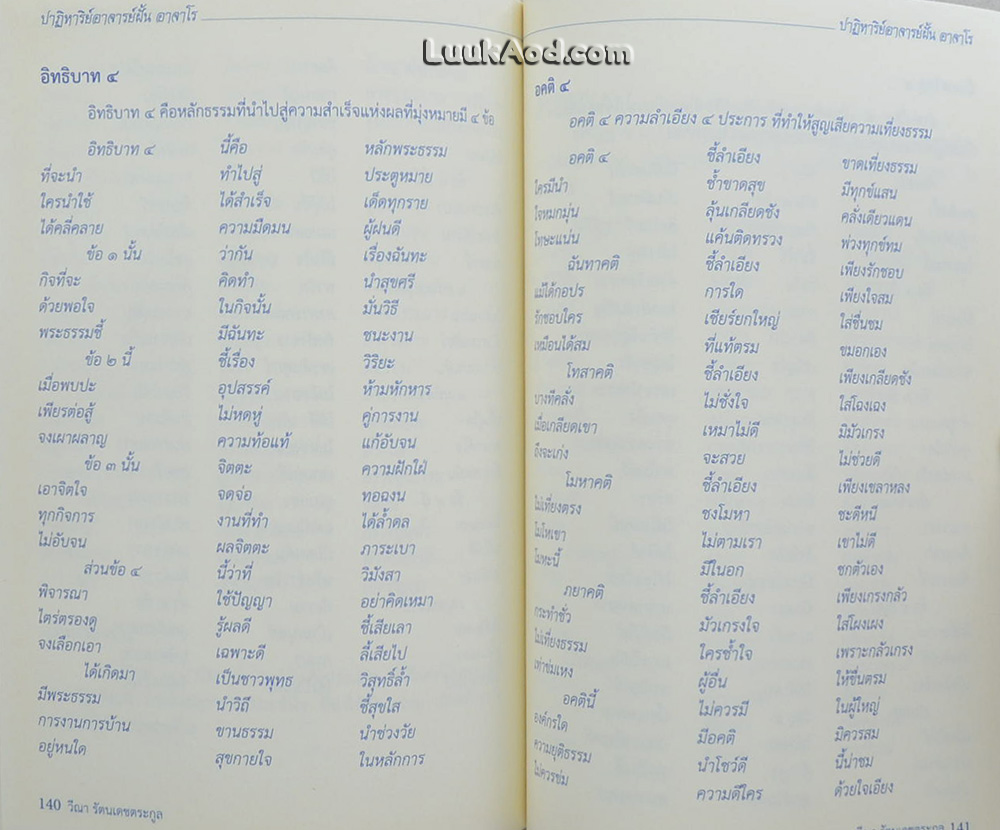 ปาฏิหาริย์อาจารย์ฝั้น อาจาโร
อิทธิบาท ๔
อิทธิบาท ๔ คือหลักธรรมที่นำไปสู่ความสำเร็จแห่งผลที่มุ่งหมายมี ๔ ข้อ
อิทธิบาท ๔ นี้คือ หลักพระธรรม
ที่จะนำ ทำไปสู่ ประตูหมาย
ใครนำใช้ ได้สำเร็จ เด็ดทุกราย
ได้คลี่คลาย ความมืดมน ผู้ฝนดี
ข้อ ๑ นั้น ว่ากัน เรื่องฉันทะ
กิจที่จะ คิดทำ นำสุขศรี
ด้วยพอใจ ในกิจนั้น มั่นวิธี
พระธรรมชี้ มีฉันทะ ชนะงาน
ข้อ ๒ นี้ ชี้เรื่อง วิริยะ
เมื่อพบปะ อุปสรรค์ ห้ามหักหาร
เพียรต่อสู้ ไม่หดหู่ คู่การงาน
จงเผาผลาญ ความท้อแท้ แก้อับจน
ข้อ ๓ นั้น จิตตะ ความฝักใฝ่
เอาจิตใจ จดจ่อ ทอฉงน
ทุกกิจการ งานที่ทำ ได้ล้ำดล
ไม่อับจน ผลจิตตะ ภาระเบา
ส่วนข้อ ๔ นี้ว่าที่ วิมังสา
พิจารณา ใช้ปัญญา อย่าคิดเหมา
ไตร่ตรองดู รู้ผลดี ชี้เสียเลา
จงเลือกเอา เฉพาะดี ลี้เสียไป
ได้เกิดมา เป็นชาวพุทธ วิสุทธิ์ล้ำ
มีพระธรรม นำวิถี ชี้สุขใส
การงานการบ้าน ขานธรรม นำช่วงวัย
อยู่หนใด สุขกายใจ ในหลักการ
140 วีณา รัตนเดชตระกูล
ปาฏิหาริย์อาจารย์ฝั้น อาจาโร
อคติ ๔
อคติ ๔ ความลำเอียง ๔ ประการ ที่ทำให้สูญเสียความเที่ยงธรรม
อคติ ๔ ชี้ลำเอียง ขาดเที่ยงธรรม
ใครมีนำ ช้ำขาดสุข มีทุกข์แสน
ใจหมกมุ่น ลุ้นเกลียดชัง คลั่งเดียวแดน
โทษะแน่น แค้นติดทรวง พ่วงทุกข์ทม
ฉันทาคติ ชี้ลำเอียง เพียงรักชอบ
แม้ได้กอปร การใด เพียงใจสม
รักชอบใคร เชียร์ยกใหญ่ ใส่ชื่นชม
เหมือนได้สม ที่แท้ตรม ขมอกเอง
โทสาคติ ชี้ลำเอียง เพียงเกลียดชัง
บางทีคลั่ง ไม่ชั่งใจ ใส่โฉงเฉง
เมื่อเกลียดเขา เหมาไม่ดี มิมัวเกรง
ถึงจะเก่ง จะสวย ไม่ช่วยดี
โมหาคติ ชี้ลำเอียง เพียงเขลาหลง
ไม่เที่ยงตรง ชงโมหา ชะดีหนี
โมโหเขา ไม่ตามเรา เขาไม่ดี
โมหะนี้ มีในอก ชกตัวเอง
ภยาคติ ชี้ลำเอียง เพียงเกรงกลัว
กระทำชั่ว มัวเกรงใจ ใส่โผงเผง
ไม่เที่ยงธรรม ใครช้ำใจ เพราะกลัวเกรง
เท่าข่มเหง ผู้อื่น ให้ขื่นตรม
อคตินี้ ไม่ควรมี ในผู้ใหญ่
องค์กรใด มีอคติ มิควรสม
ความยุติธรรม นำโชว์ดี นี้น่าชม
ไม่ควรข่ม ความดีใคร ด้วยใจเอียง
141
LuukAod.com